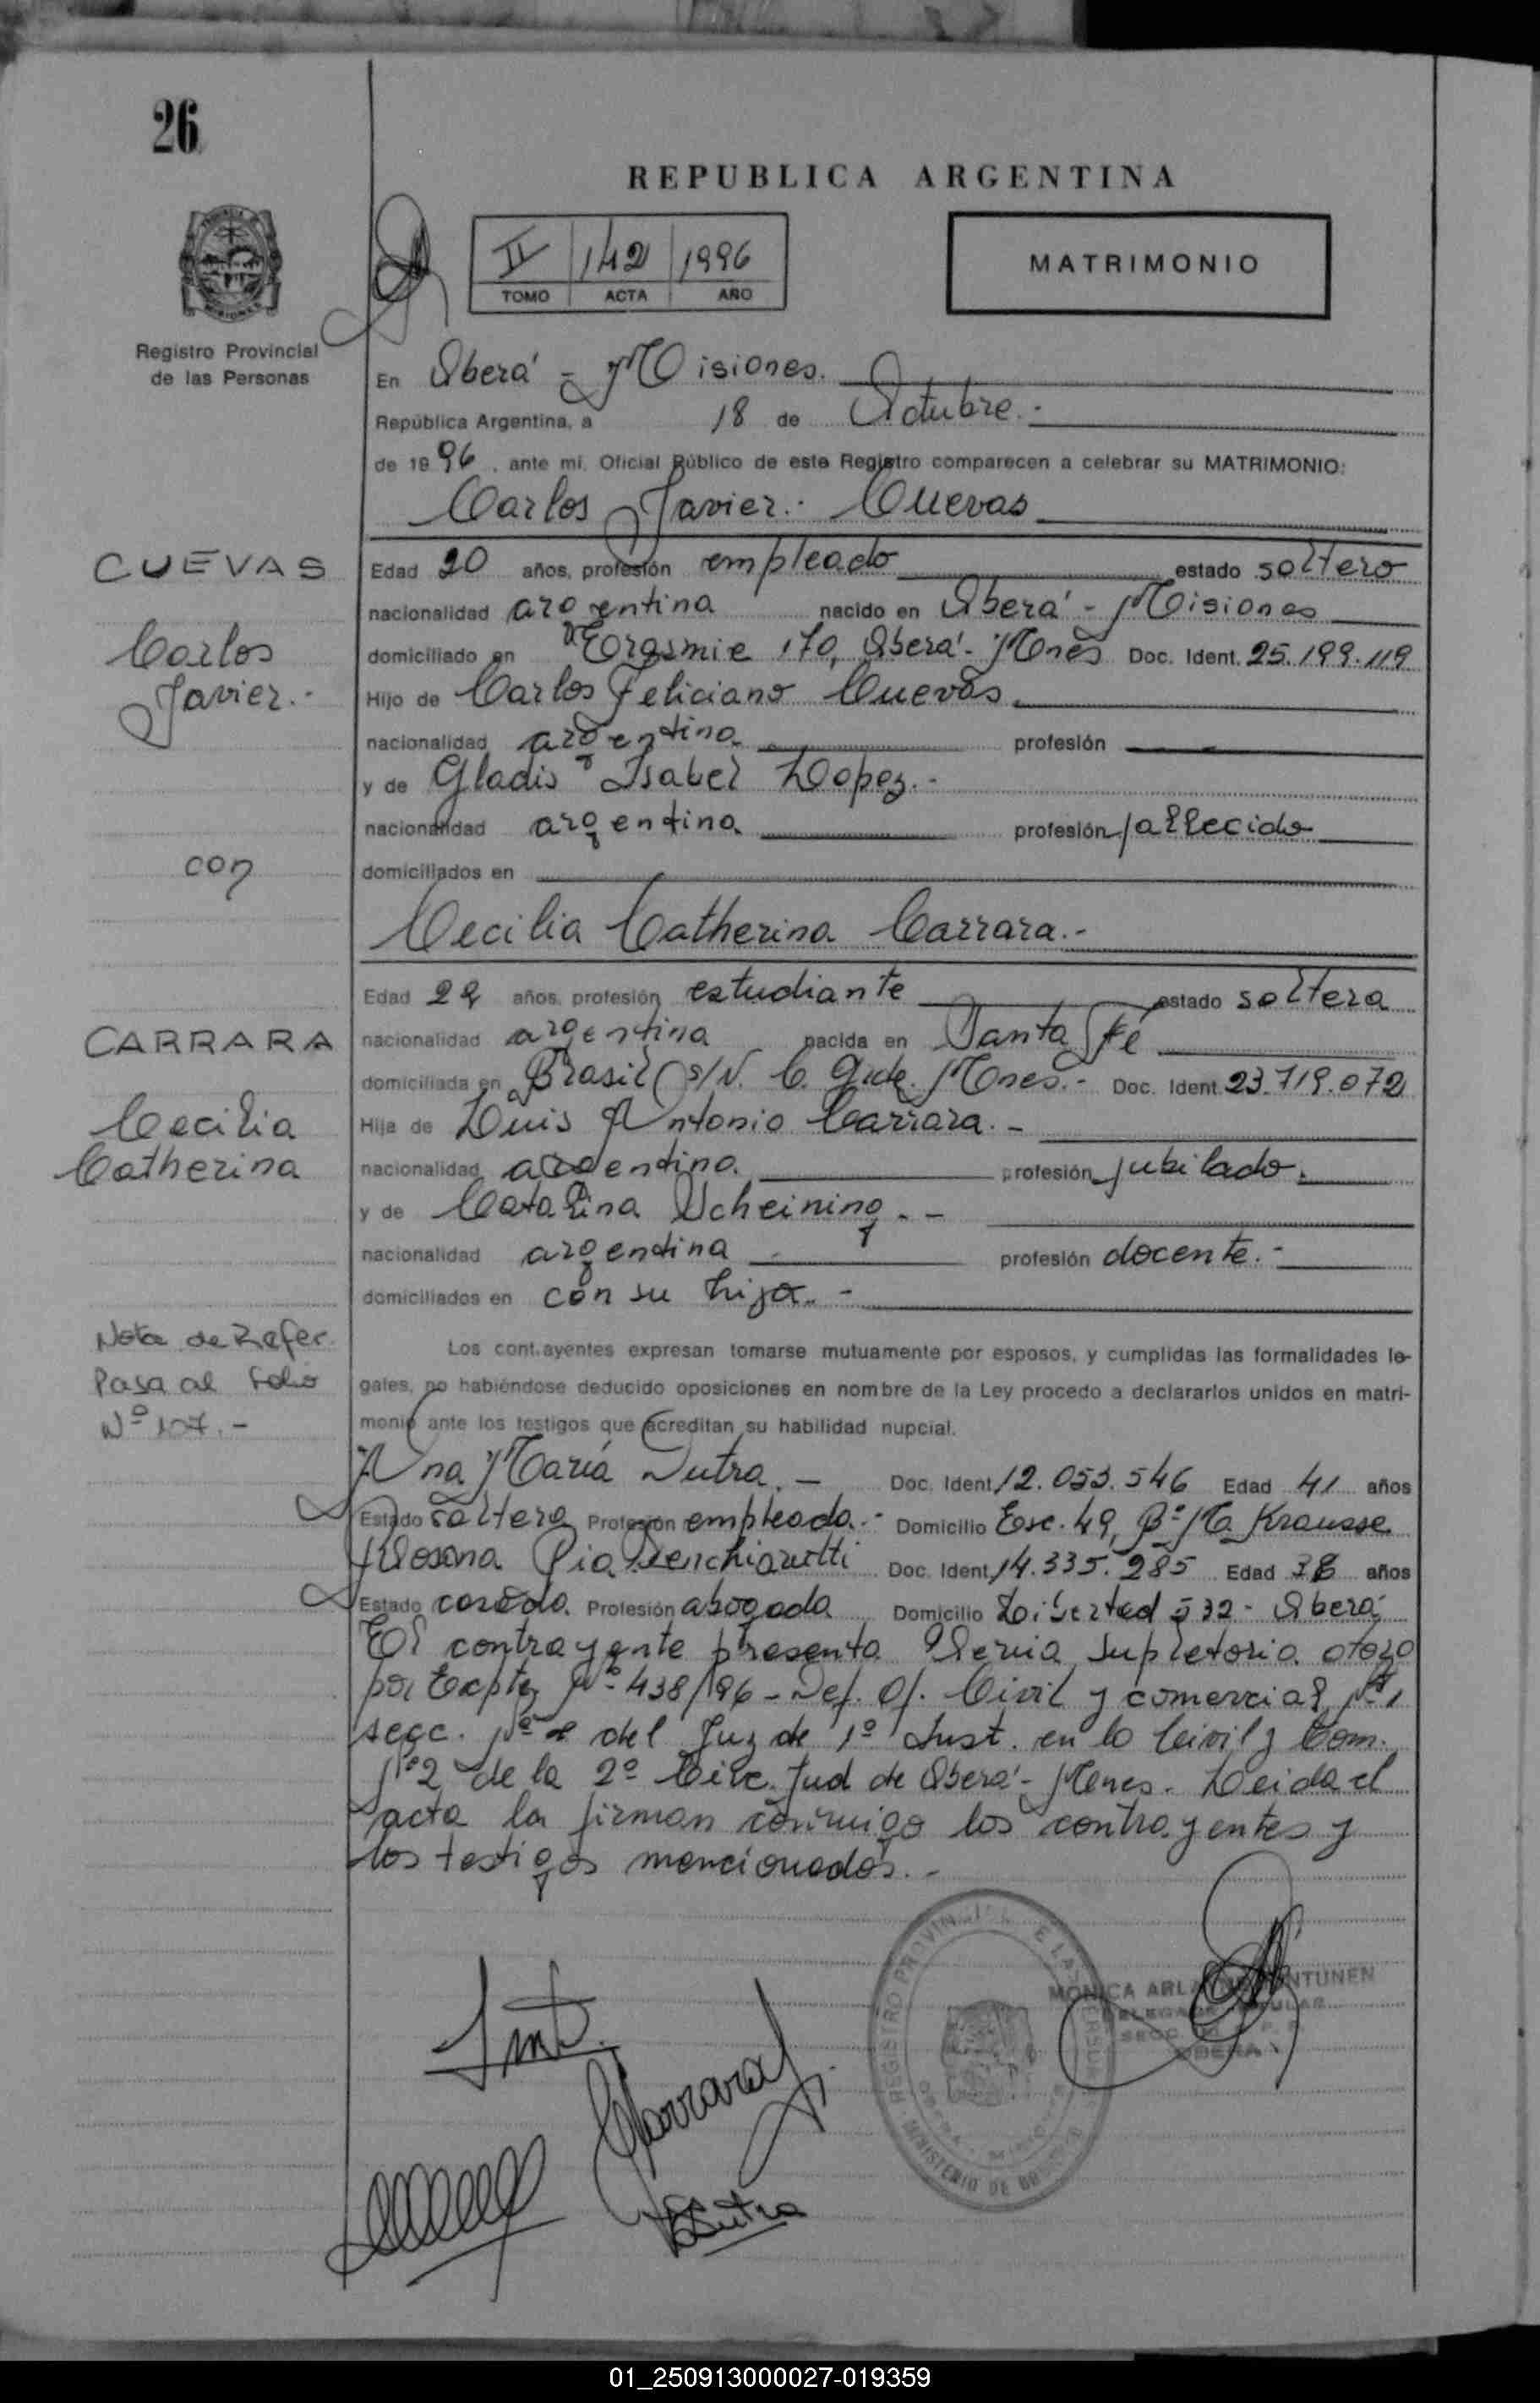 26
REPUBLICA ARGENTINA
II 142 1996
TOMO ACTA AÑO
MATRIMONIO
Registro Provincial
de las Personas
En Oberá - Misiones.
República Argentina, a 18 de Octubre.-
de 1996, ante mi, Oficial Público de este Registro comparecen a celebrar su MATRIMONIO:
Carlos Javier.- Cuevas
CUEVAS
Carlos
Javier.-
Edad 20 años, profesión empleado estado soltero
nacionalidad argentina nacido en Oberá - Misiones
domiciliado en 170, Oberá - Mnes Doc. Ident. 25.199.119
Hijo de Carlos Feliciano Cuevas.
nacionalidad argentina. profesión
y de Gladis Isabel Lopez.-
nacionalidad argentina profesión fallecida
domiciliados en
con
Cecilia Catherina Carrara.-
CARRARA
Cecilia
Catherina
Edad años, profesión estudiante estado soltera
nacionalidad argentina nacida en Santa Fé
domiciliada en Brasil s/N. C. Gde. Mnes.- Doc. Ident. 23.719.072
Hija de Luis Antonio Carrara.-
nacionalidad argentina. profesión jubilado.
y de Catalina Scheining.-
nacionalidad argentina profesión docente.-
domiciliados en con su hija.-
Nota de Refer.
Pasa al Folio
Nº 107.-
Los contrayentes expresan tomarse mutuamente por esposos, y cumplidas las formalidades le-
gales, no habiéndose deducido oposiciones en nombre de la Ley procedo a declararlos unidos en matri-
monio ante los testigos que acreditan su habilidad nupcial.
Ana María Dutra.- Doc. Ident. 12.053.546 Edad 41 años
Estado soltera Profesión empleada.- Domicilio Esc. 49, Bº M. Krausse
Rosana Pia Doc. Ident. 14.335.285 Edad años
Estado casada Profesión abogada Domicilio Libertad 532 - Oberá
El contrayente presenta Venia Supletoria otorg
por Expte Nº 438/96 - Def. Of. Civil y comercial Nº 1
secc. Nº del Juz de 1º Inst. en lo Civil y Com.
Nº 2 de la 2º Circ. Jud de Oberá - Mnes. Leida el
acta la firman conmigo los contrayentes y
los testigos mencionados.-
REGISTRO PROVINCIAL DE LAS PERSONAS
MINISTERIO DE GOBIERNO
MONICA
OBERA
Carrara
Dutra
01_250913000027-019359